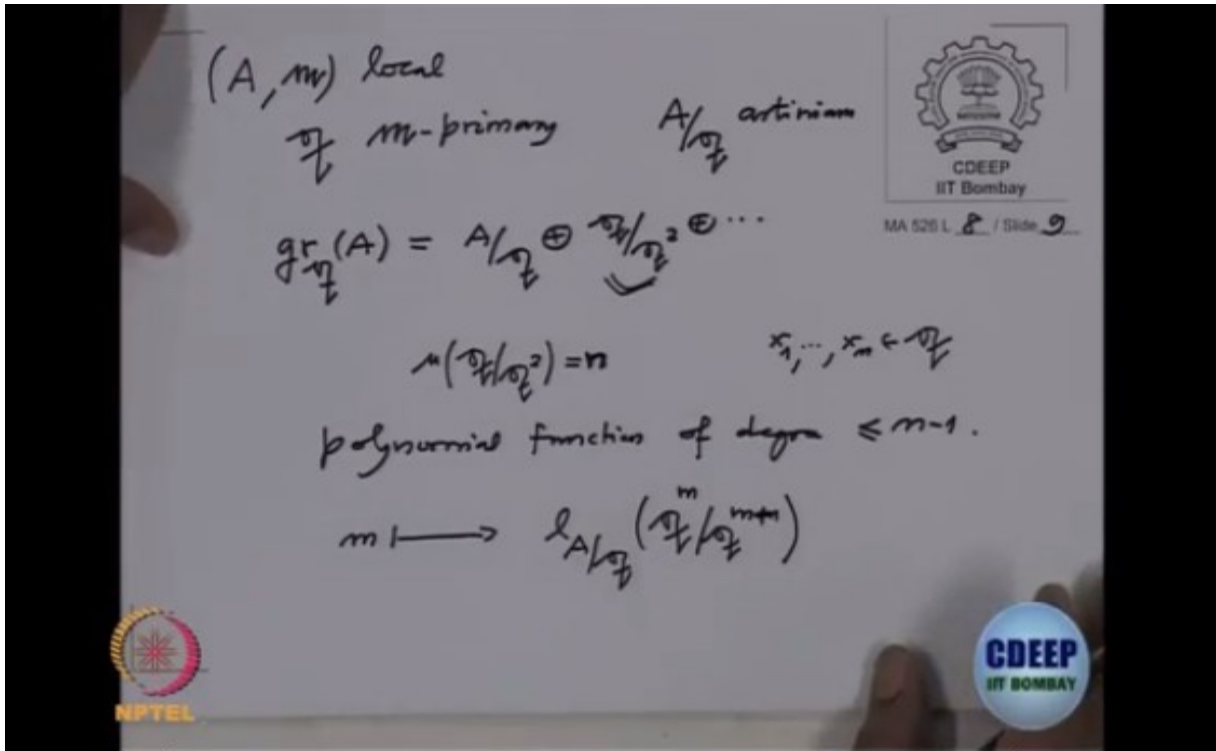 (A, m) local
q m-primary A/q artinian
CDEEP
IIT Bombay
MA 526 L 8 / Slide 9
gr_q(A) = A/q ⊕ q/q² ⊕ ···
μ(q/q²) = n x₁, ..., xₙ ∈ q
polynomial function of degree ≤ n-1.
m ⟼ ℓ_{A/q}(q^m/q^{m+1})
NPTEL
CDEEP
IIT BOMBAY